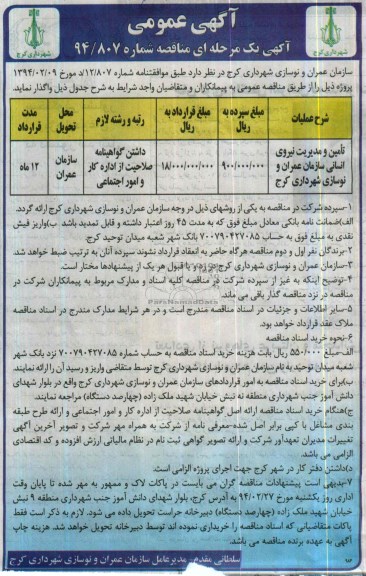 آگهی عمومی
آگهی یک مرحله ای مناقصه شماره ۹۴/۸۰۷
شهرداری کرج
شهرداری کرج
سازمان عمران و نوسازی شهرداری کرج در نظر دارد طبق موافقتنامه شماره ۱۲/۸۰۷/د مورخ ۱۳۹۴/۰۲/۰۹
پروژه ذیل را از طریق مناقصه عمومی به پیمانکاران و متقاضیان واجد شرایط به شرح جدول ذیل واگذار نماید.
شرح عملیات
مبلغ سپرده به ریال
مبلغ قرارداد به ریال
رتبه و رشته لازم
محل تحویل
مدت قرارداد
تأمین و مدیریت نیروی انسانی سازمان عمران و نوسازی شهرداری کرج
۹۰۰/۰۰۰/۰۰۰
۱۸/۰۰۰/۰۰۰/۰۰۰
داشتن گواهینامه صلاحیت از اداره کار و امور اجتماعی
سازمان عمران
۱۲ ماه
۱-سپرده شرکت در مناقصه به یکی از روشهای ذیل در وجه سازمان عمران و نوسازی شهرداری کرج ارائه گردد.
الف)ضمانت نامه بانکی معادل مبلغ فوق که به مدت ۴۵ روز اعتبار داشته و قابل تمدید باشد ب)واریز فیش
نقدی به مبلغ فوق به حساب ۷۰۰۷۹۰۴۲۷۰۸۵ بانک شهر شعبه میدان توحید کرج.
۲-برندگان نفر اول و دوم مناقصه هرگاه حاضر به انعقاد قرارداد نشوند سپرده آنان به ترتیب ضبط خواهد شد.
۳-سازمان عمران و نوسازی شهرداری کرج در رد و یا قبول هر یک از پیشنهادها مختار است.
۴-توضیح اینکه به غیر از سپرده شرکت در مناقصه کلیه اسناد و مدارک مربوط به پیمانکاران شرکت در
مناقصه در نزد مناقصه گذار باقی می ماند.
۵-سایر اطلاعات و جزئیات در اسناد مناقصه مندرج است و در هر شرایط مدارک مندرج در اسناد مناقصه
ملاک عقد قرارداد خواهد بود.
۶-نحوه خرید اسناد مناقصه
الف-مبلغ ۵۵۰/۰۰۰ ریال بابت هزینه خرید اسناد مناقصه به حساب شماره ۷۰۰۷۹۰۴۲۷۰۸۵ نزد بانک شهر
شعبه میدان توحید به نام سازمان عمران و نوسازی شهرداری کرج توسط متقاضی واریز و رسید آن را ارائه نمایند.
ب)برای خرید اسناد مناقصه به امور قراردادهای سازمان عمران و نوسازی شهرداری کرج واقع در بلوار شهدای
دانش آموز جنب شهرداری منطقه نه نبش خیابان شهید ملک زاده (چهارصد دستگاه) مراجعه نمایند.
ج)هنگام خرید اسناد مناقصه ارائه اصل گواهینامه صلاحیت از اداره کار و امور اجتماعی و ارائه طرح طبقه
بندی مشاغل با کپی برابر اصل شده-معرفی نامه از شرکت به همراه مهر شرکت و تصویر آخرین آگهی
تغییرات مدیران تعهدآور شرکت و ارائه تصویر گواهی ثبت نام در نظام مالیاتی ارزش افزوده و کد اقتصادی
الزامی می باشد.
د)داشتن دفتر کار در شهر کرج جهت اجرای پروژه الزامی است.
۷-بدیهی است پیشنهادات مناقصه گران می بایست در پاکات لاک و ممهور به مهر شده تا پایان وقت
اداری روز یکشنبه مورخ ۹۴/۰۲/۲۷ به آدرس کرج، بلوار شهدای دانش آموز جنب شهرداری منطقه ۹ نبش
خیابان شهید ملک زاده (چهارصد دستگاه) دبیرخانه حراست تحویل داده می شود. لازم به ذکر است فقط
پاکات متقاضیانی که اسناد مناقصه را خریداری نموده اند توسط دبیرخانه تحویل خواهد شد. هزینه چاپ
آگهی به عهده برنده مناقصه می باشد.
سلطانی مقدم - مدیرعامل سازمان عمران و نوسازی شهرداری کرج
ParsNamadData